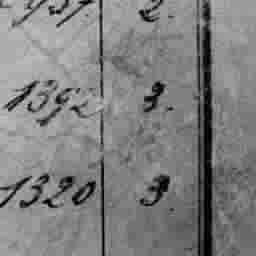 2.
1392 3.
1320 3.